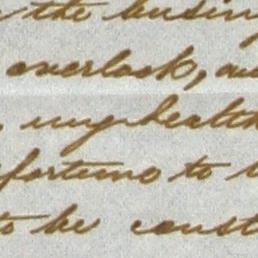 the busin
overlook, au
my health
fortune to
to be const